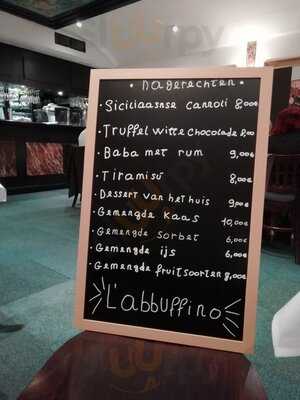 • Nagerechten •
• Siciliaasnse cannoli 8,00€
• Truffel witte chocolade 8,00€
• Baba met rum 9,00€
• Tiramisú 8,00€
• Dessert van het huis 9,00€
• Gemengde kaas 10,00€
• Gemengde sorbet 6,00€
• Gemengde ijs 6,00€
• Gemengde fruitsoorten 8,00€
L'abbuffino